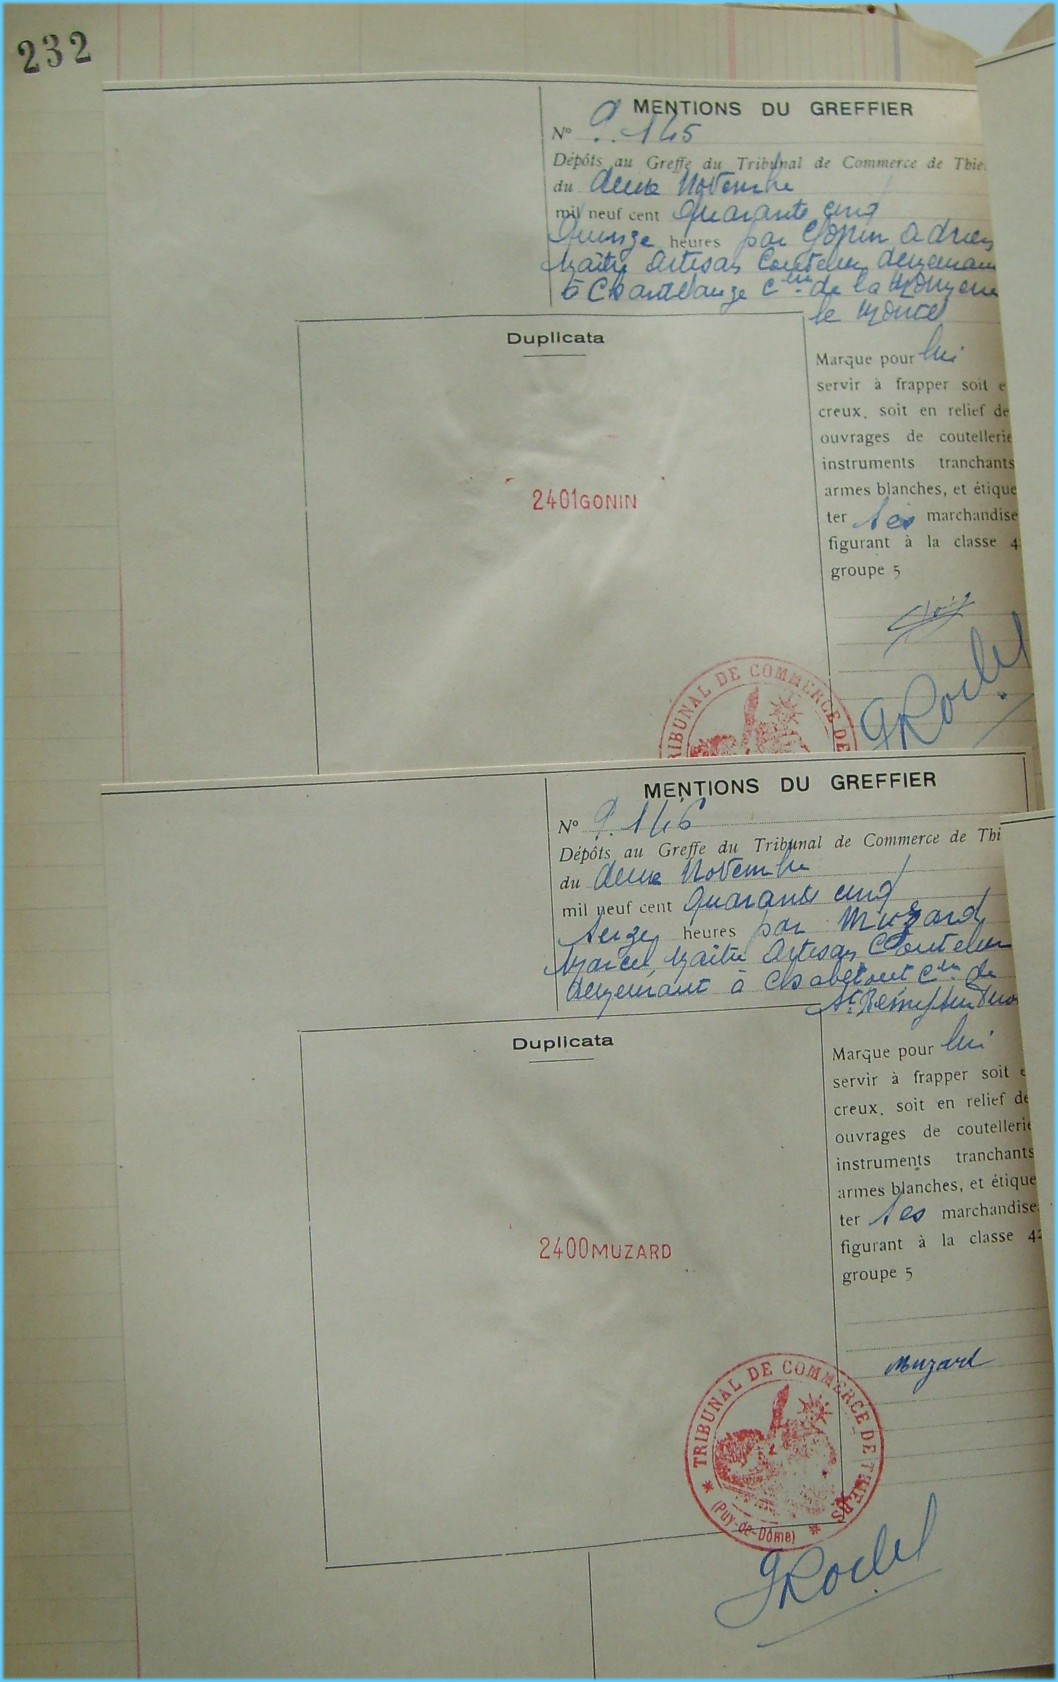 232
MENTIONS DU GREFFIER
Nº 9.145
Dépôts au Greffe du Tribunal de Commerce de Thie
du douze Novembre
mil neuf cent quarante cinq
Quinze heures par Gonin Adrien
Maître Artisan Coutelier demeurant
à Chantelauze Cne de la Monnerie
le Montel
Duplicata
Marque pour lui
servir à frapper soit e
creux, soit en relief de
ouvrages de coutellerie
instruments tranchants
armes blanches, et étique
ter ses marchandise
figurant à la classe 4
groupe 5
2401GONIN
TRIBUNAL DE COMMERCE DE
GRodel
MENTIONS DU GREFFIER
Nº 9.146
Dépôts au Greffe du Tribunal de Commerce de Thi
du douze Novembre
mil neuf cent quarante cinq
Seize heures par Muzard
Marcel, Maître Artisan Coutelier
demeurant à Chabetout Cne de
St Rémy sur Durolle
Duplicata
Marque pour lui
servir à frapper soit e
creux, soit en relief de
ouvrages de coutellerie
instruments tranchants
armes blanches, et étique
ter ses marchandise
figurant à la classe 42
groupe 5
2400MUZARD
Muzard
* TRIBUNAL DE COMMERCE DE THIERS *
(Puy-de-Dôme)
GRodel